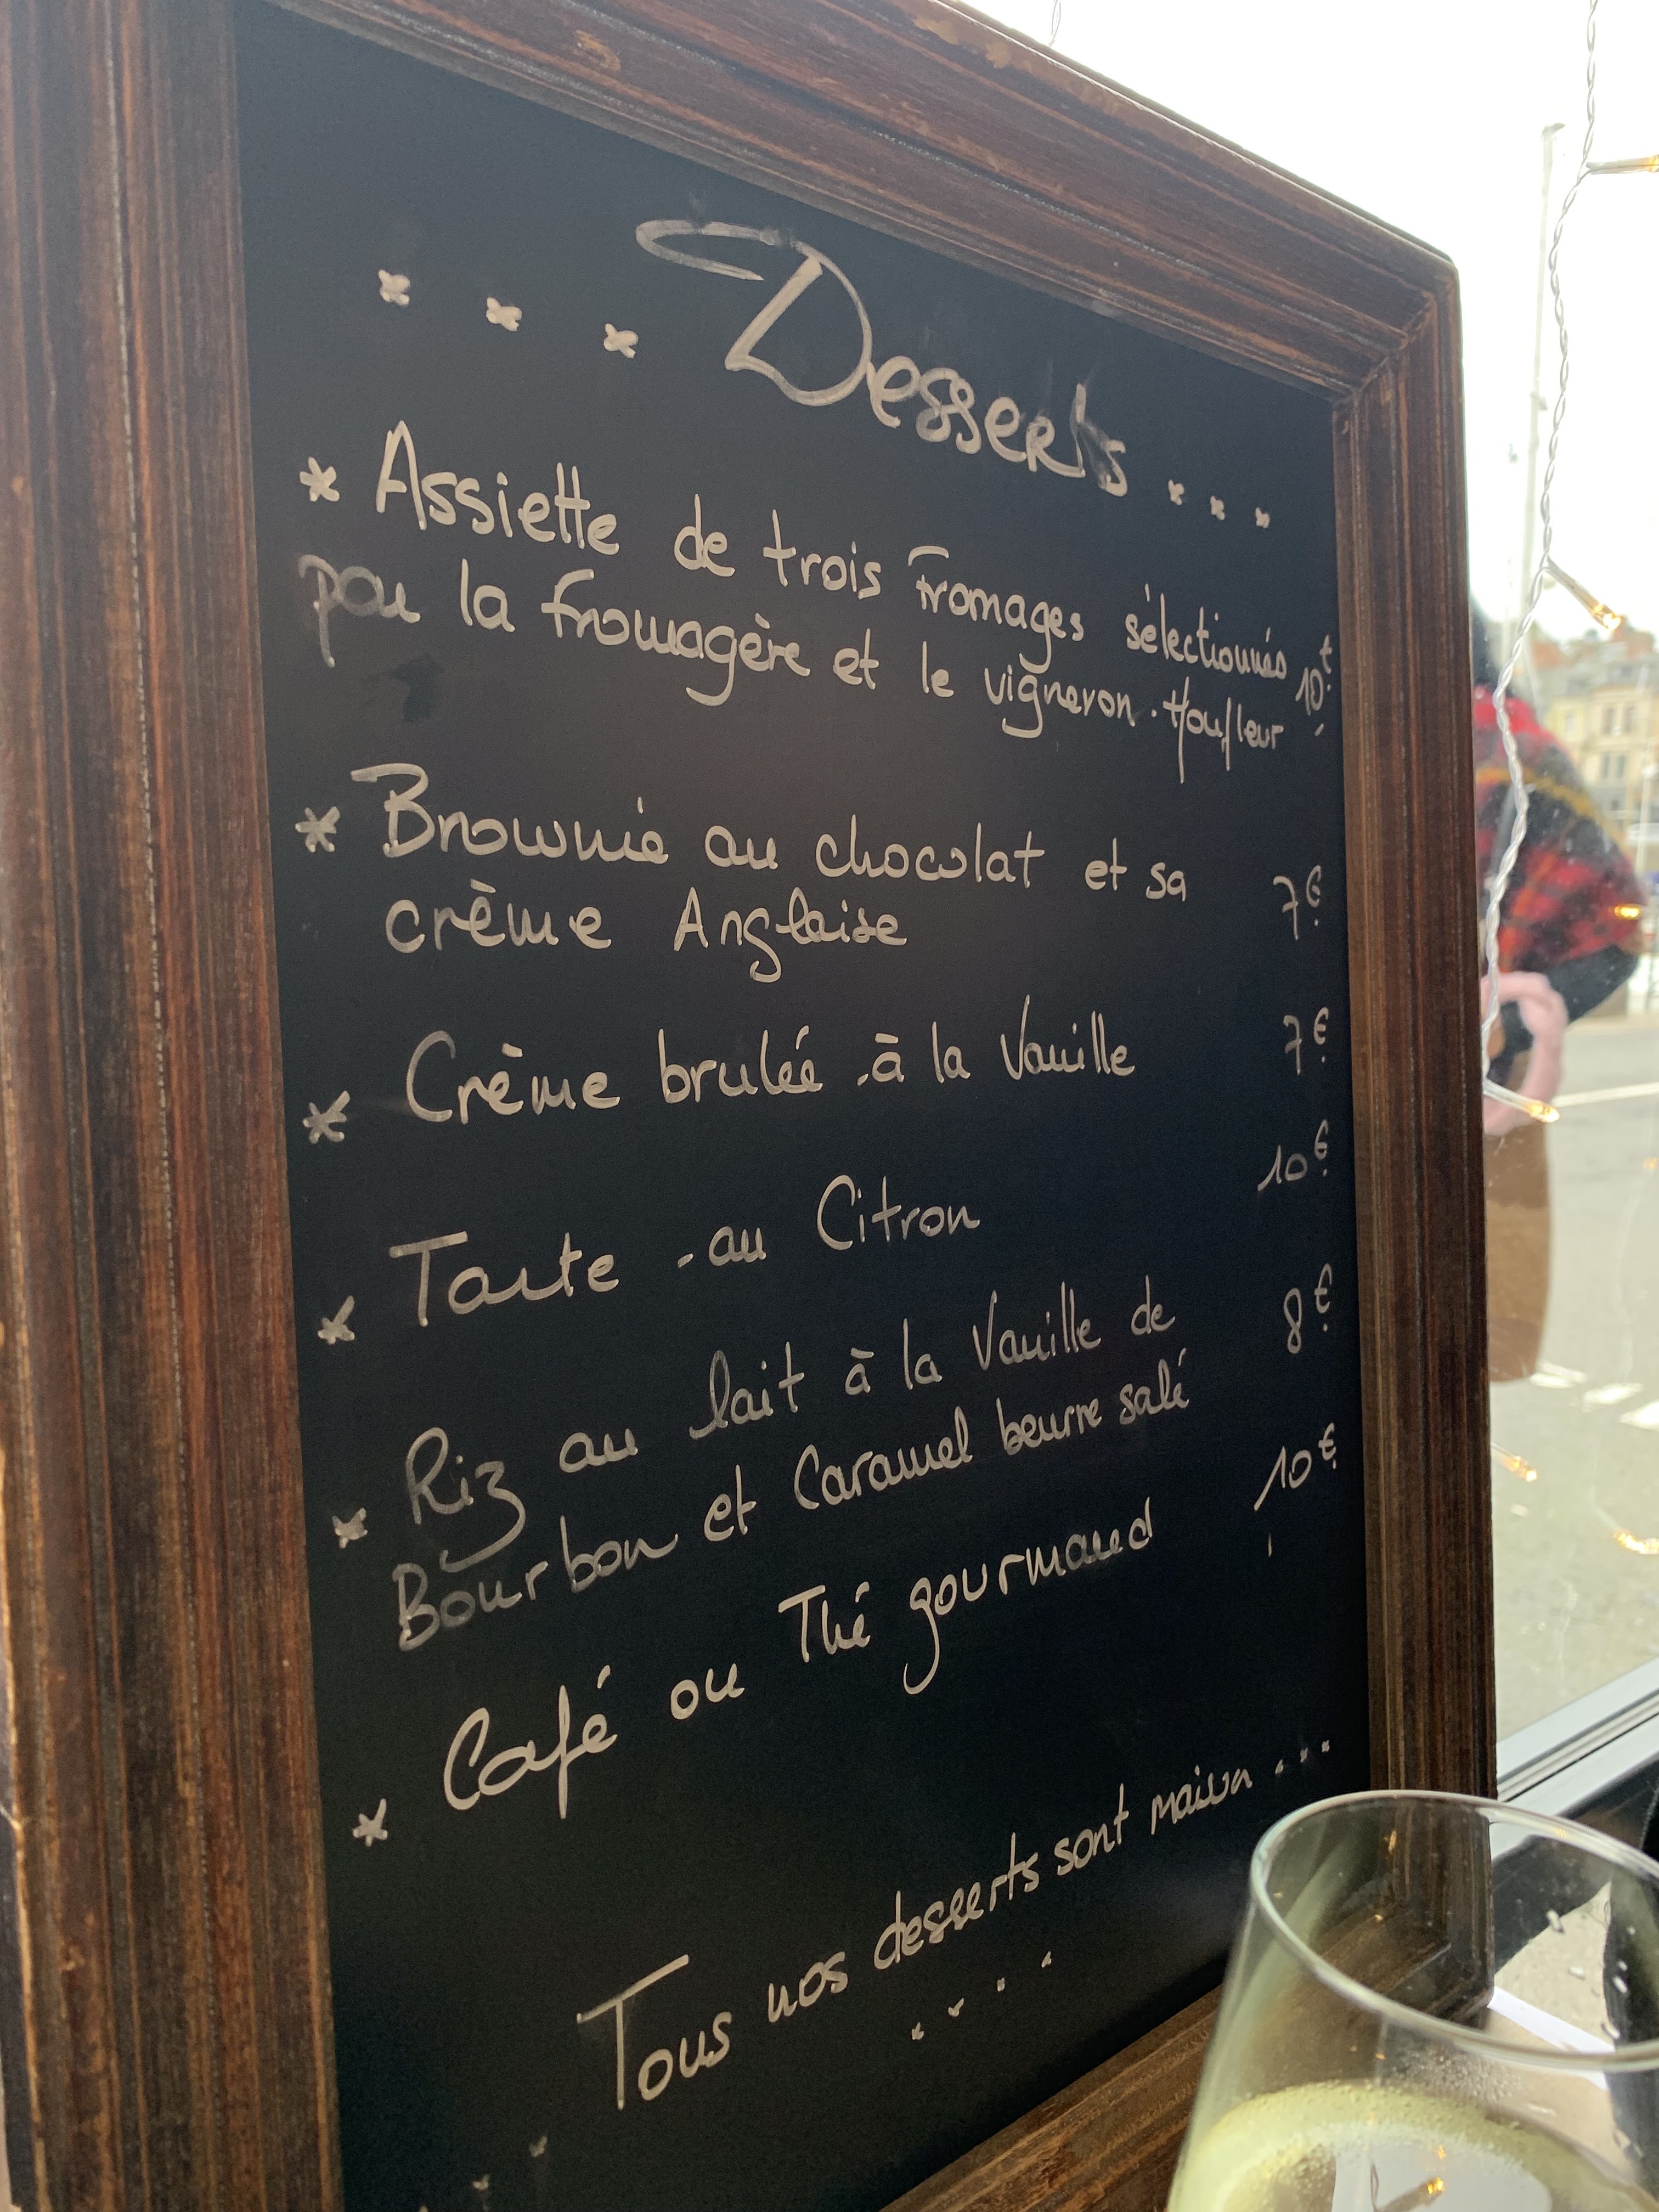 Desserts
* Assiette de trois Fromages sélectionnés 10€
par la fromagère et le vigneron. Honfleur
* Brownie au chocolat et sa 7€
crème Anglaise
* Crème brulée à la Vanille 7€
* Tarte au Citron 10€
* Riz au lait à la Vanille de 8€
Bourbon et Caramel beurre salé
* Café ou Thé gourmand 10€
Tous nos desserts sont maison...